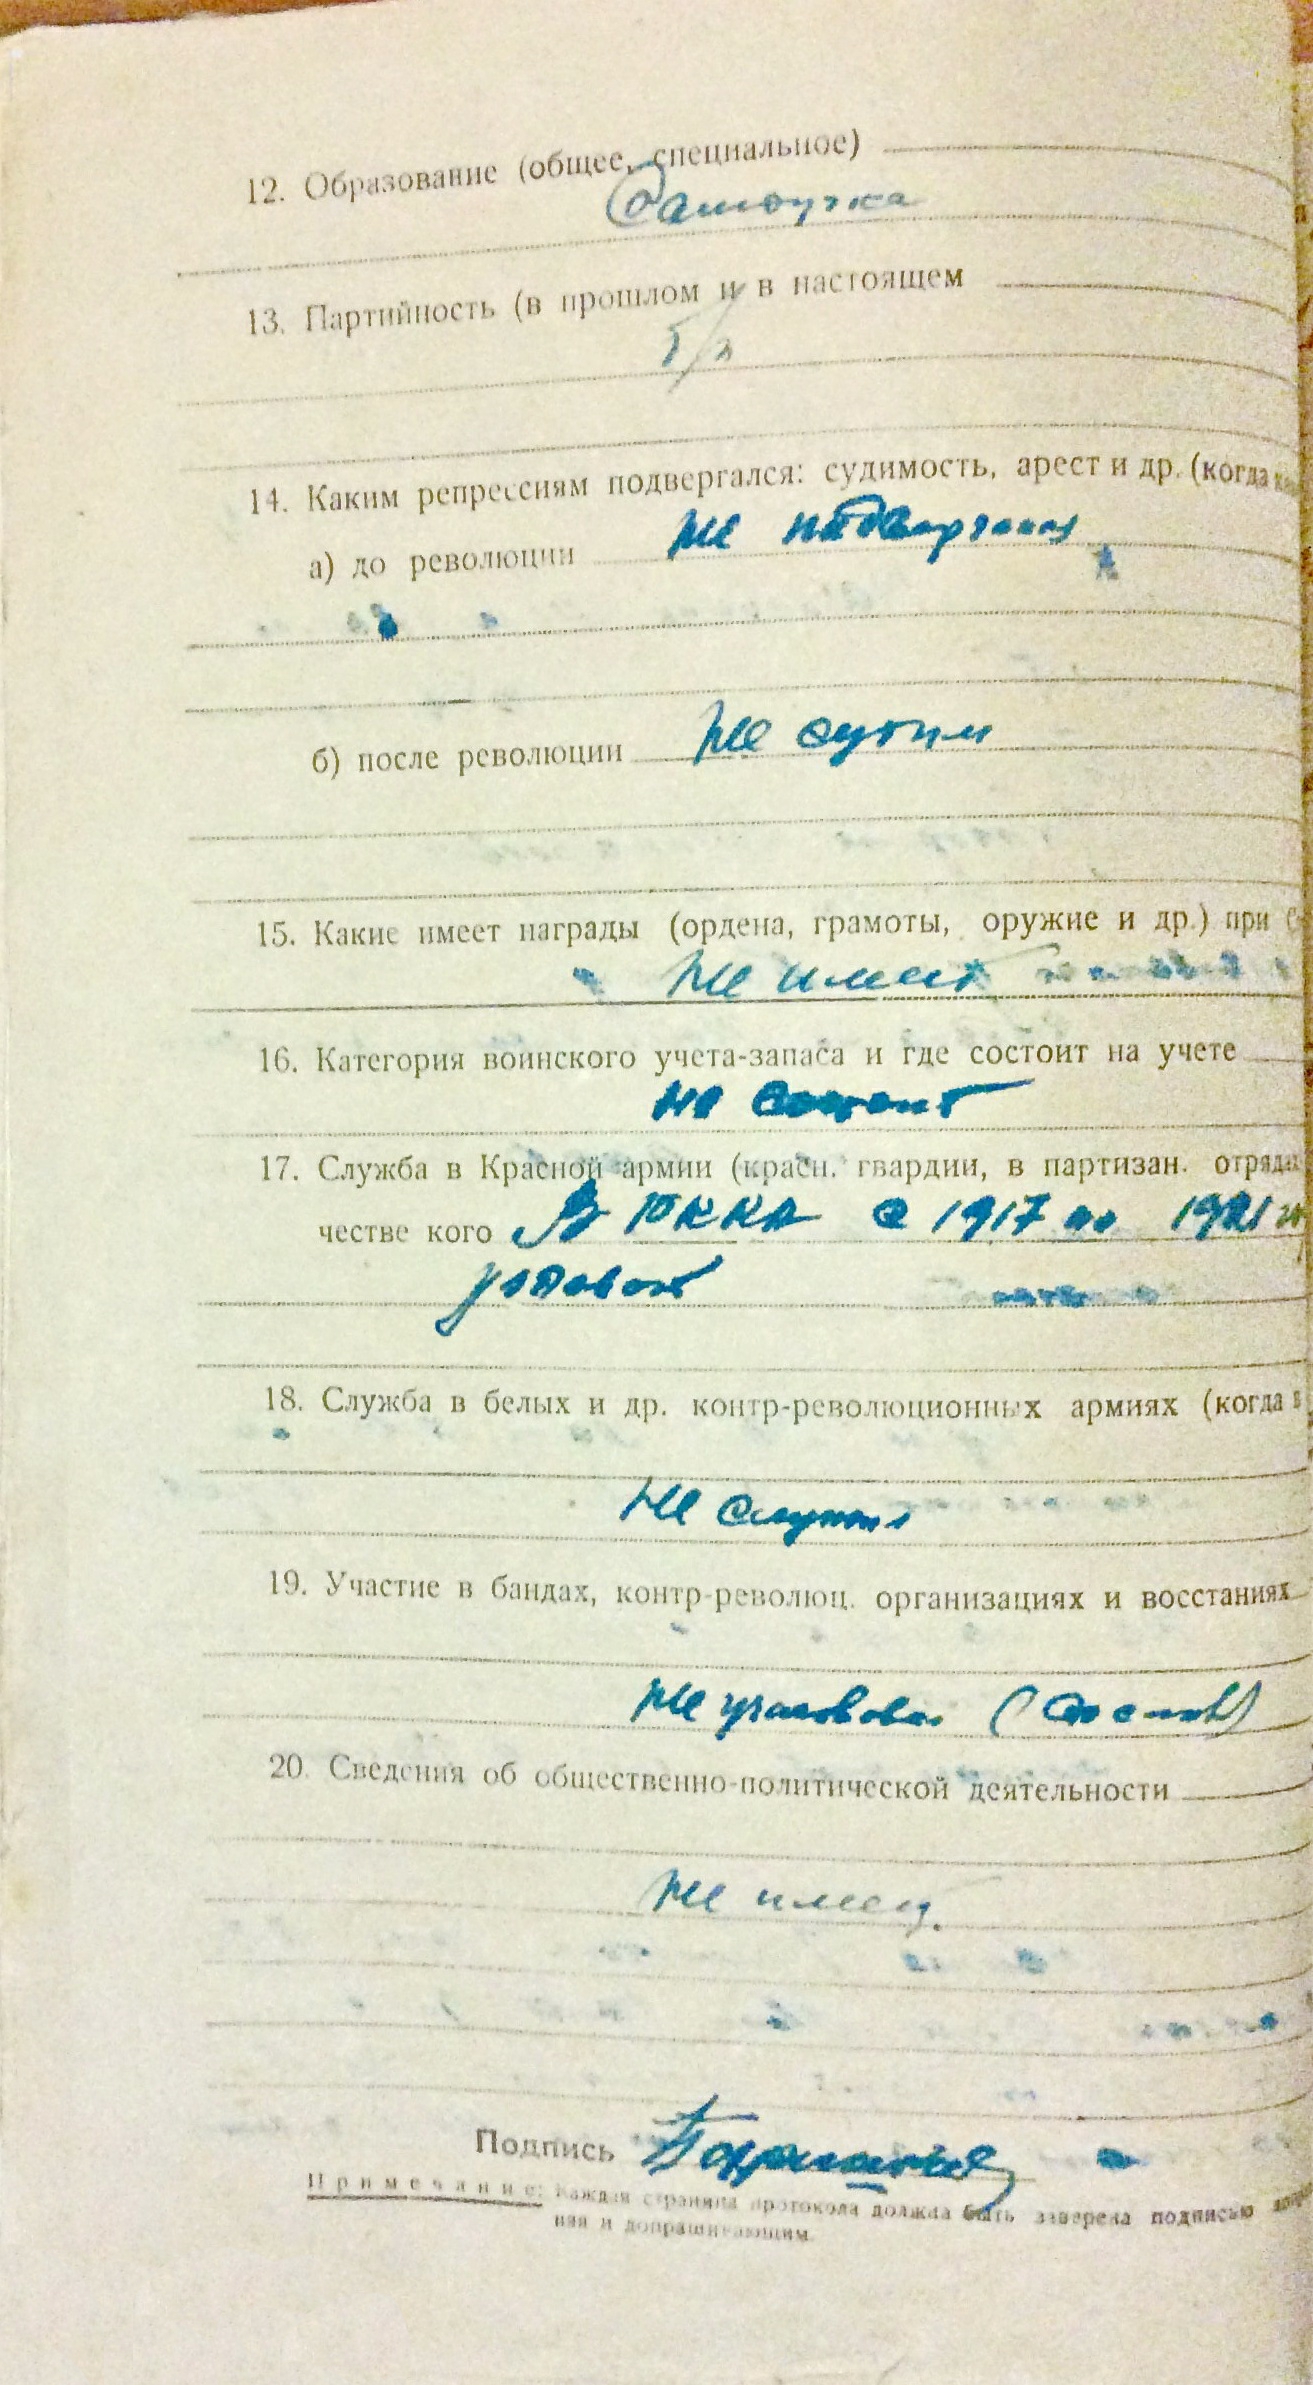 12. Образование (общее, специальное)
Самоучка
13. Партийность (в прошлом и в настоящем
б/п
14. Каким репрессиям подвергался: судимость, арест и др. (когда
а) до революции не подвергался
б) после революции не судим
15. Какие имеет награды (ордена, грамоты, оружие и др.) при
не имеет
16. Категория воинского учета-запаса и где состоит на учете
не состоит
17. Служба в Красной армии (красн. гвардии, в партизан. отряда
честве кого В РККА с 1917 по 1921 г
рядовой
18. Служба в белых и др. контр-революционных армиях (когда в
не служил
19. Участие в бандах, контр-революц. организациях и восстаниях
не участвовал (со слов)
20. Сведения об общественно-политической деятельности
не имеет.
Подпись
Примечание: Каждая страница протокола должна быть заверена подписью
ния и допрашивающим.